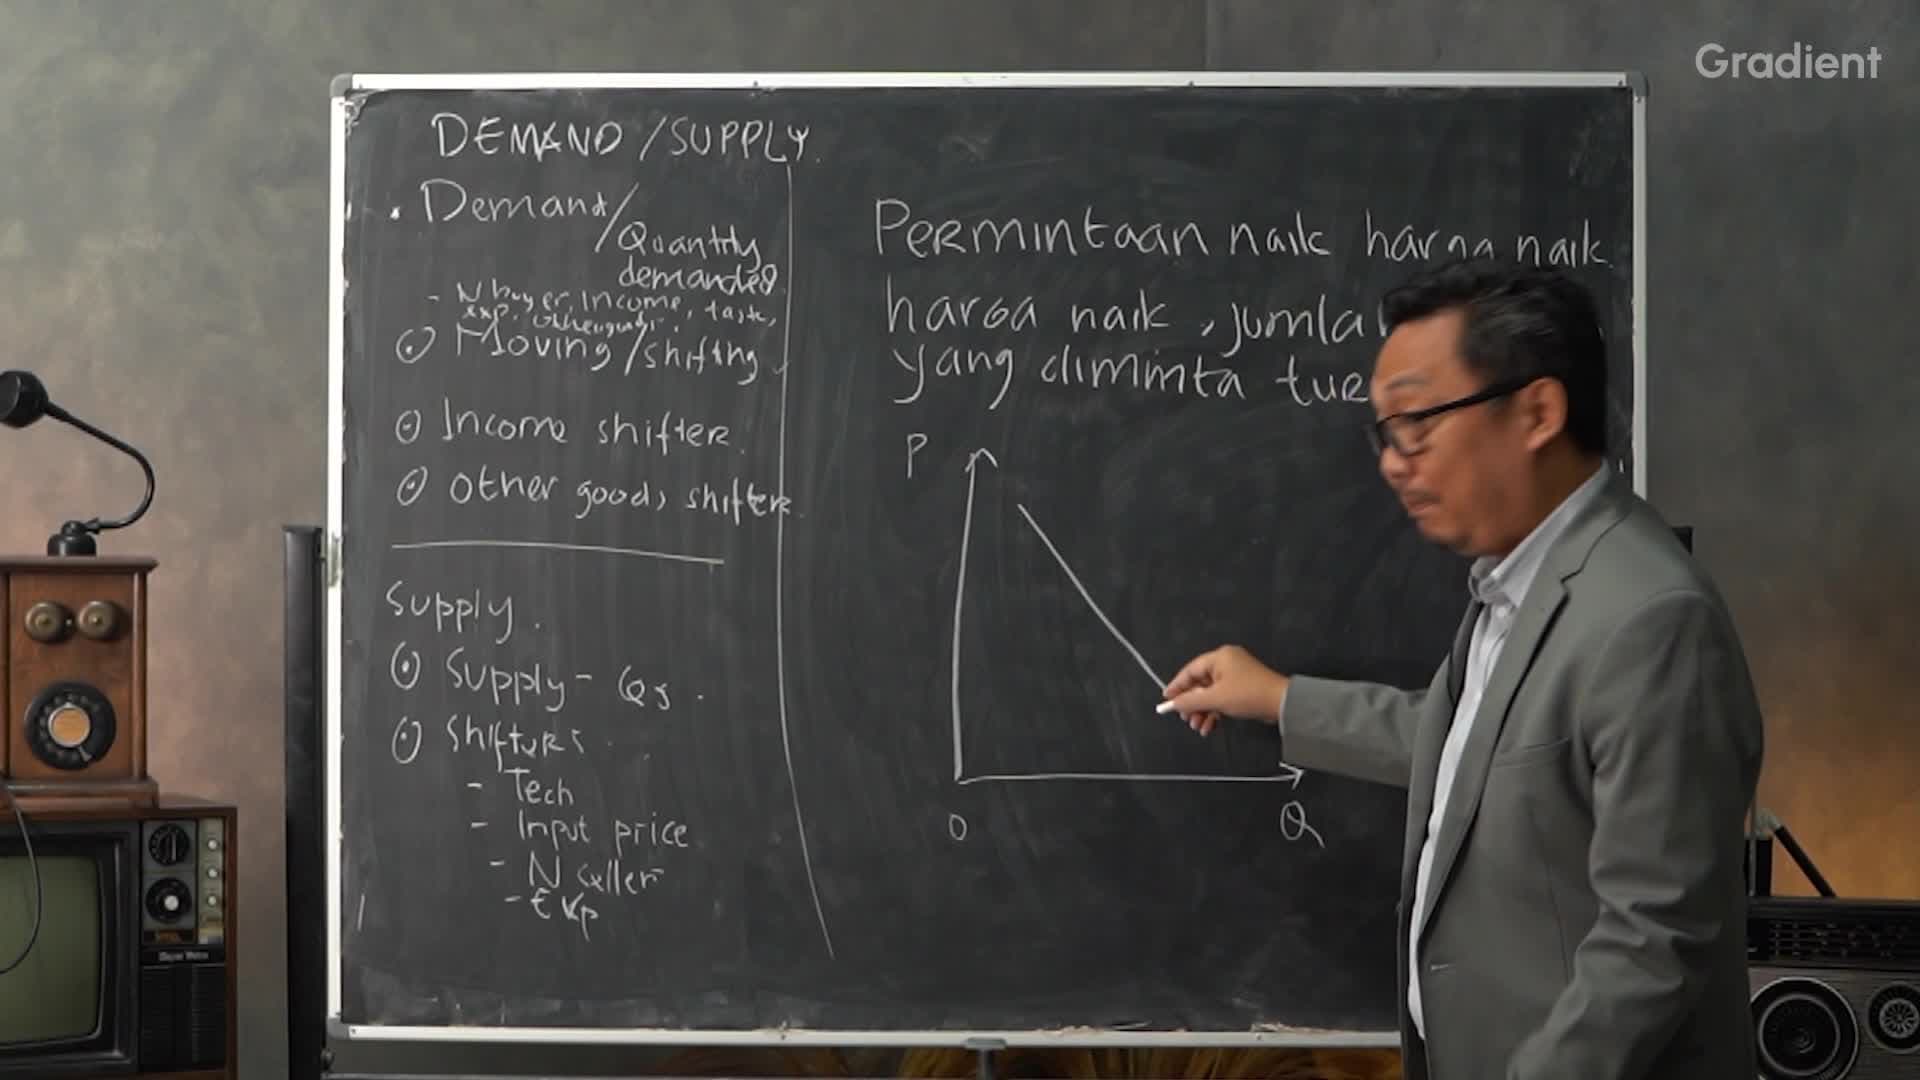 Gradient
DEMAND / SUPPLY.
Demand /
Quantity
demanded.
- N buyer, income, taste,
exp, other goods.
Moving / shifting
Income shifter.
Other goods shifter.
Supply.
Supply - Qs.
Shifters.
- Tech
- Input price
- N seller
- Exp
Permintaan naik harga naik.
harga naik, jumla
yang diminta tur
P
O
Q